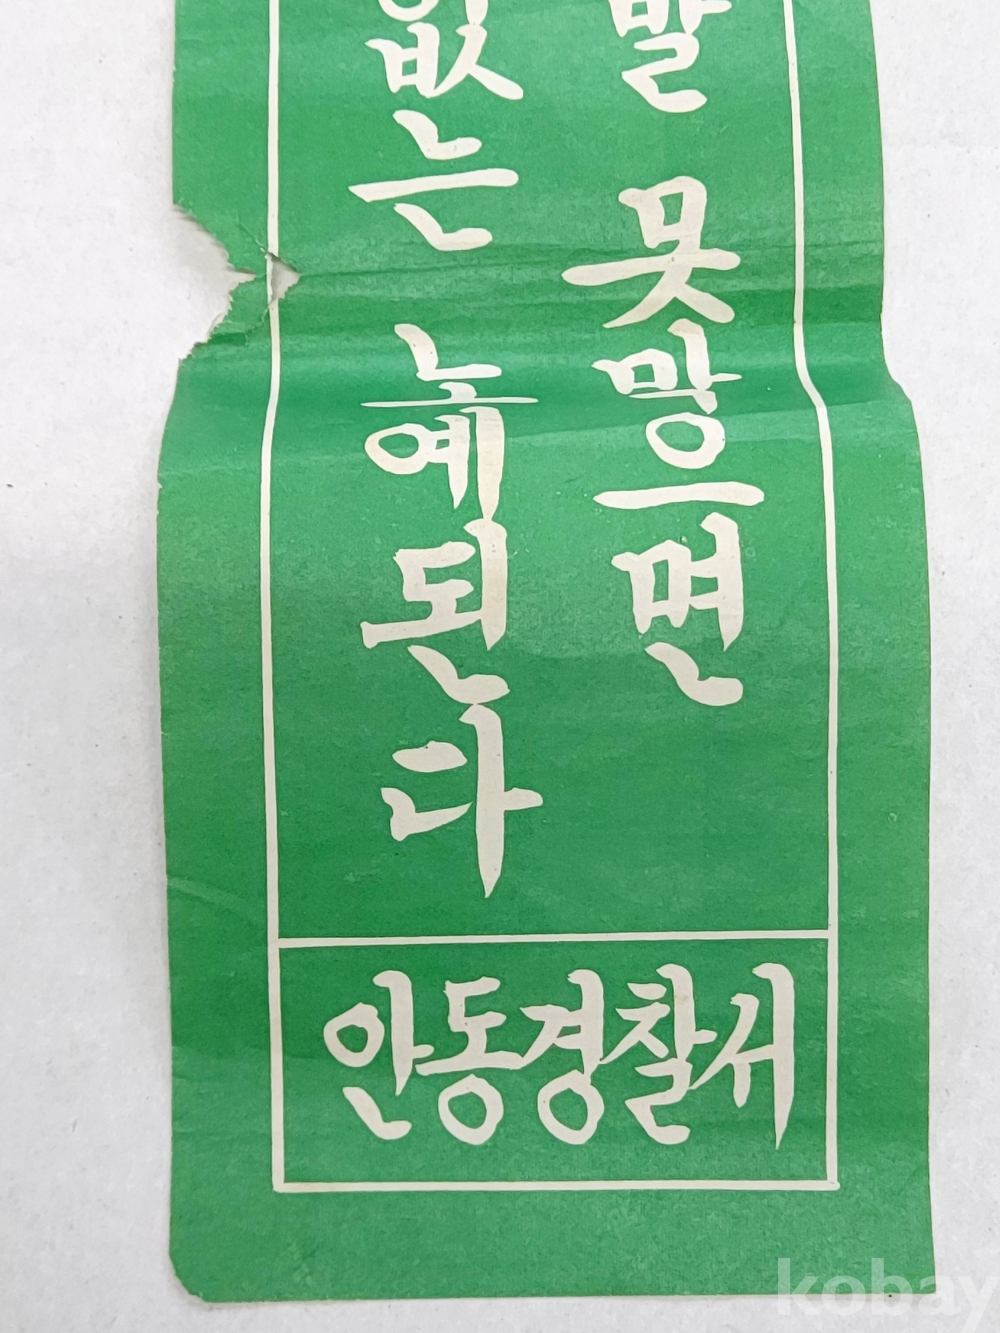 발 못막으면
없는 노예된다
안동경찰서
kobay